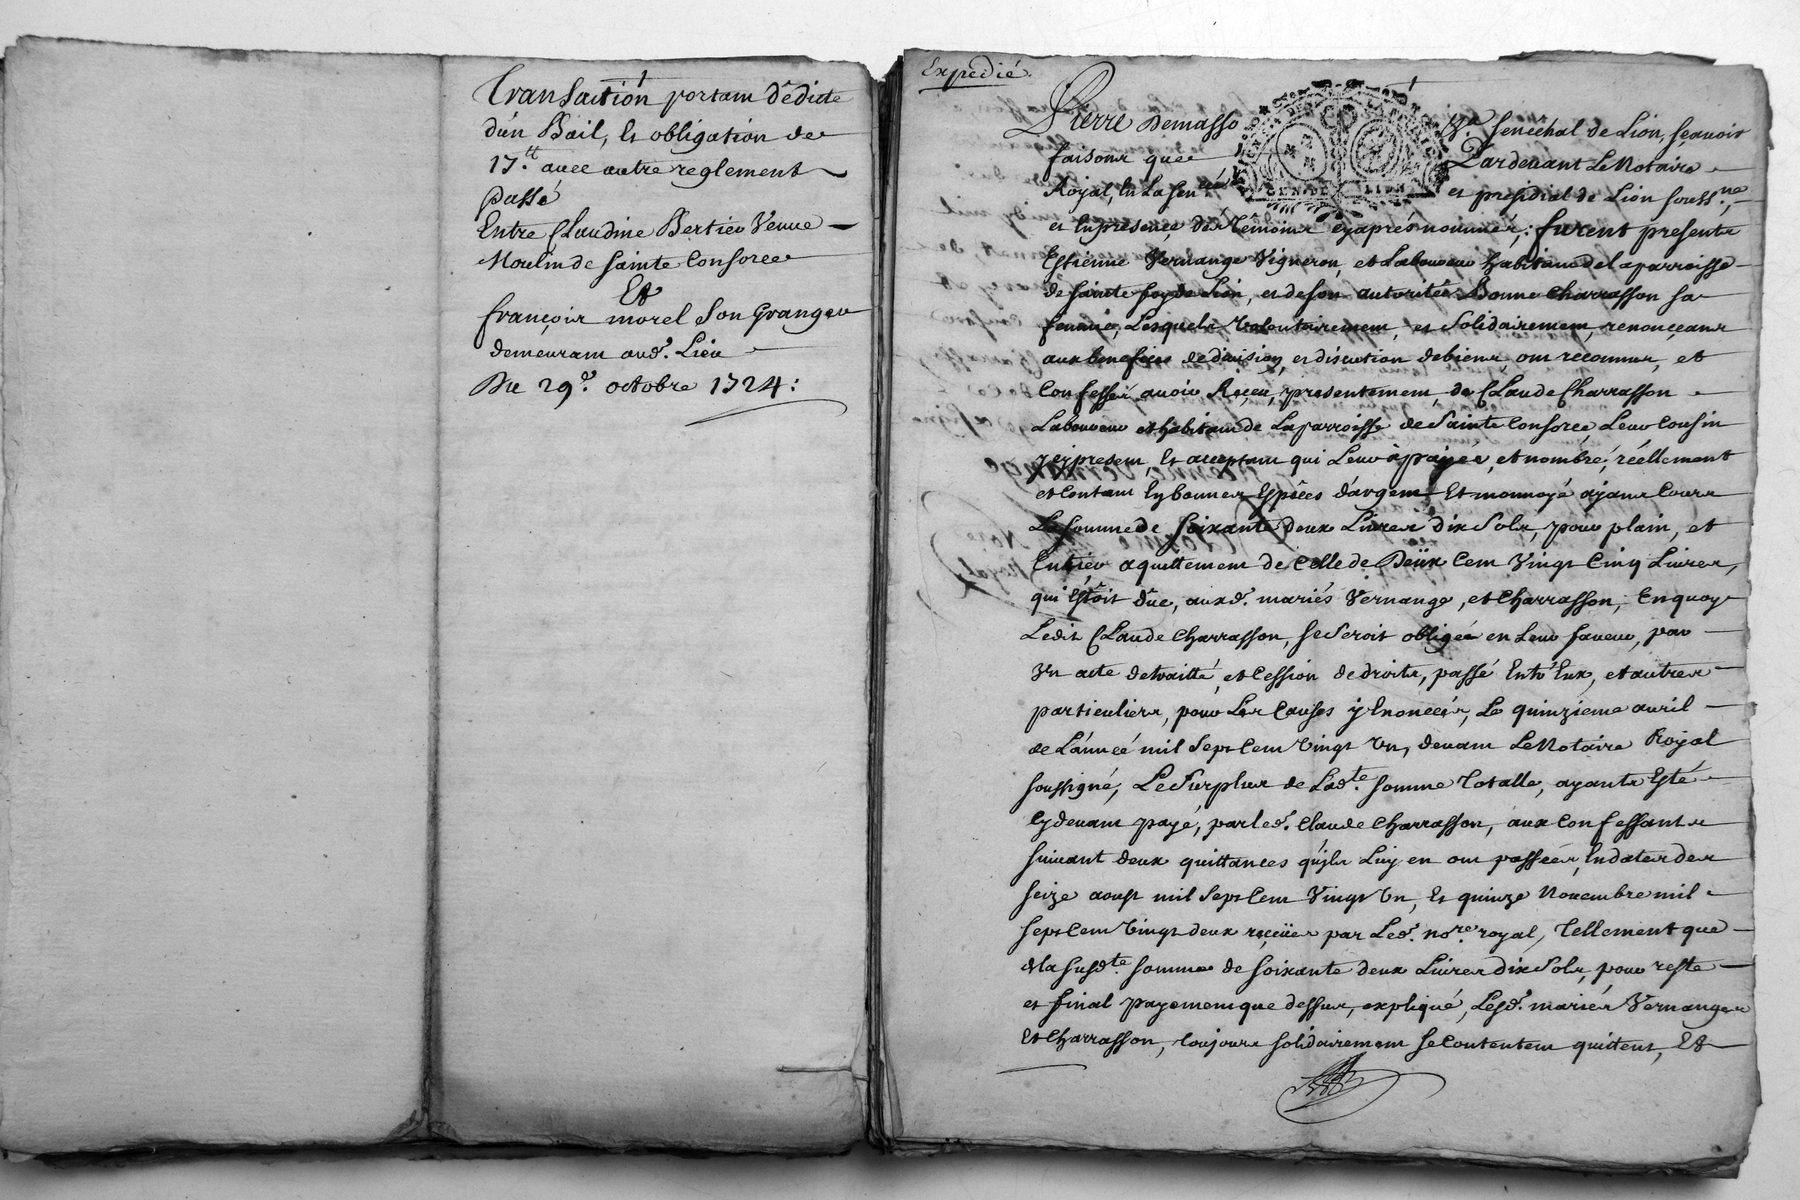 Transaction portant dédicte
d'un Bail, et obligation de
17.tt avec autre reglement
passé
Entre Claudine Bertier Veuve
Moulin de sainte Consorce
Et
françois morel Son Granger
demeurant aud. Lieu
Du 29e. octobre 1724:
Expedié
Pierre Demasso
Sr. senêchal de Lion, sçavoir
faisons que
Pardevant Le Notaire
Royal, En La senêc
et présidial de Lion souss.né
et En presence des Têmoins cy après nommés, furent presents
Estienne Vernange Vigneron, et Laboureur habitant de la parroisse
de sainte foy de Lion, et de son autorité Bonne Charrasson sa
femme, Lesquels volontairement, et Solidairement, renonçeant
aux benefices de division, et discution de biens, ont reconnu, et
Confessé avoir Reçeu, presentement, de Claude Charrasson
Laboureur et habitant de La parroisse de Sainte Consorce, Leur Cousin
y present, Et acceptant qui Leur à payée, et nombré, réellement
et Contant En bonnes Espêces d'argent Et monnoyé ayant Cours
La somme de soixante deux Livres dix Sols, pour plain, et
Entier aquittement de Celle de Deux Cent Vingt Cinq Livres,
qui Estoit dûe, auxd. mariés Vernange, et Charrasson, En quoy
Ledit Claude Charrasson, se Seroit obligée en Leur faveur, par
Un acte de traitté, et Cession de droits, passé Entr'Eux, et autres
particuliers, pour Les Causes y Enoncées, Le quinzieme avril
de L'année mil Sept Cent Vingt Un, devant Le Notaire Royal
soussigné, Le Surplus de Lad.te somme Totalle, ayants Esté
Cy devant payé, par led. Claude Charrasson, aux Confessants
suivant deux quittances qu'ils Luy en ont passées, En dates des
seize aoust mil Sept Cent Vingt Un, Et quinze Novembre mil
sept Cent Vingt deux reçeües par Led. no.re royal, Tellement que
de la susd.te somme de soixante deux Livres dix Sols, pour reste
et final payement que dessus, expliqué, Lesd. mariés Vernange
Et Charrasson, Toujours solidairement se Contentent quittent, Et